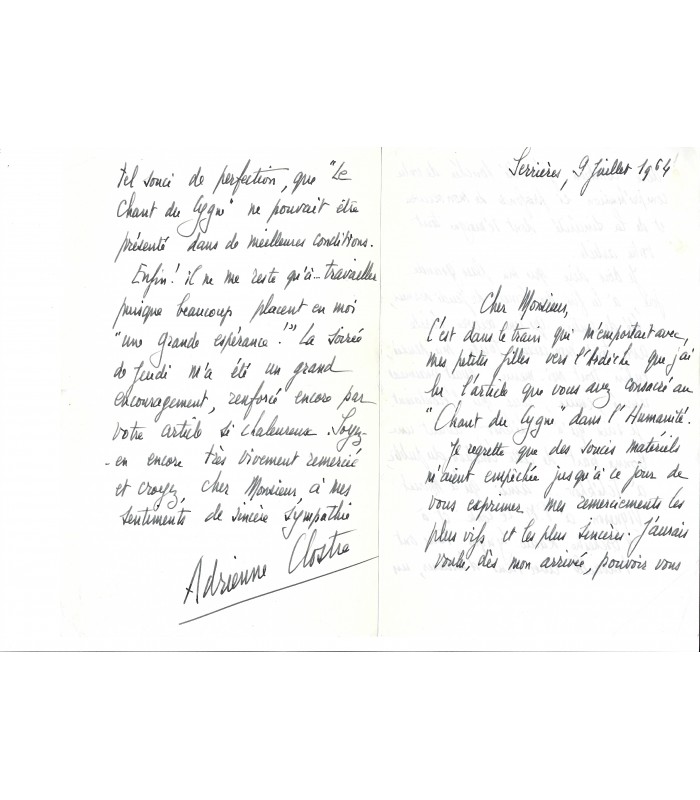 Serrières, 9 Juillet 1964
Cher Monsieur,
C'est dans le train qui m'emportait avec,
mes petites filles vers l'Ardèche que j'ai
lu l'article que vous avez consacré au
"Chant du Cygne" dans l'Humanité.
Je regrette que des soucis matériels
m'aient empêchée jusqu'à ce jour de
vous exprimer mes remerciements les
plus vifs et les plus sincères. J'aurais
voulu, dès mon arrivée, pouvoir vous
tel souci de perfection, que "Le
Chant du Cygne" ne pouvait être
présenté dans de meilleures conditions.
Enfin! il ne me reste qu'à... travailler
puisque beaucoup placent en moi
"une grande espérance!" La soirée
de Jeudi m'a été un grand
encouragement, renforcé encore par
votre article si chaleureux. Soyez-
-en encore très vivement remercié
et croyez, cher Monsieur, à mes
sentiments de sincère sympathie
Adrienne Clostre